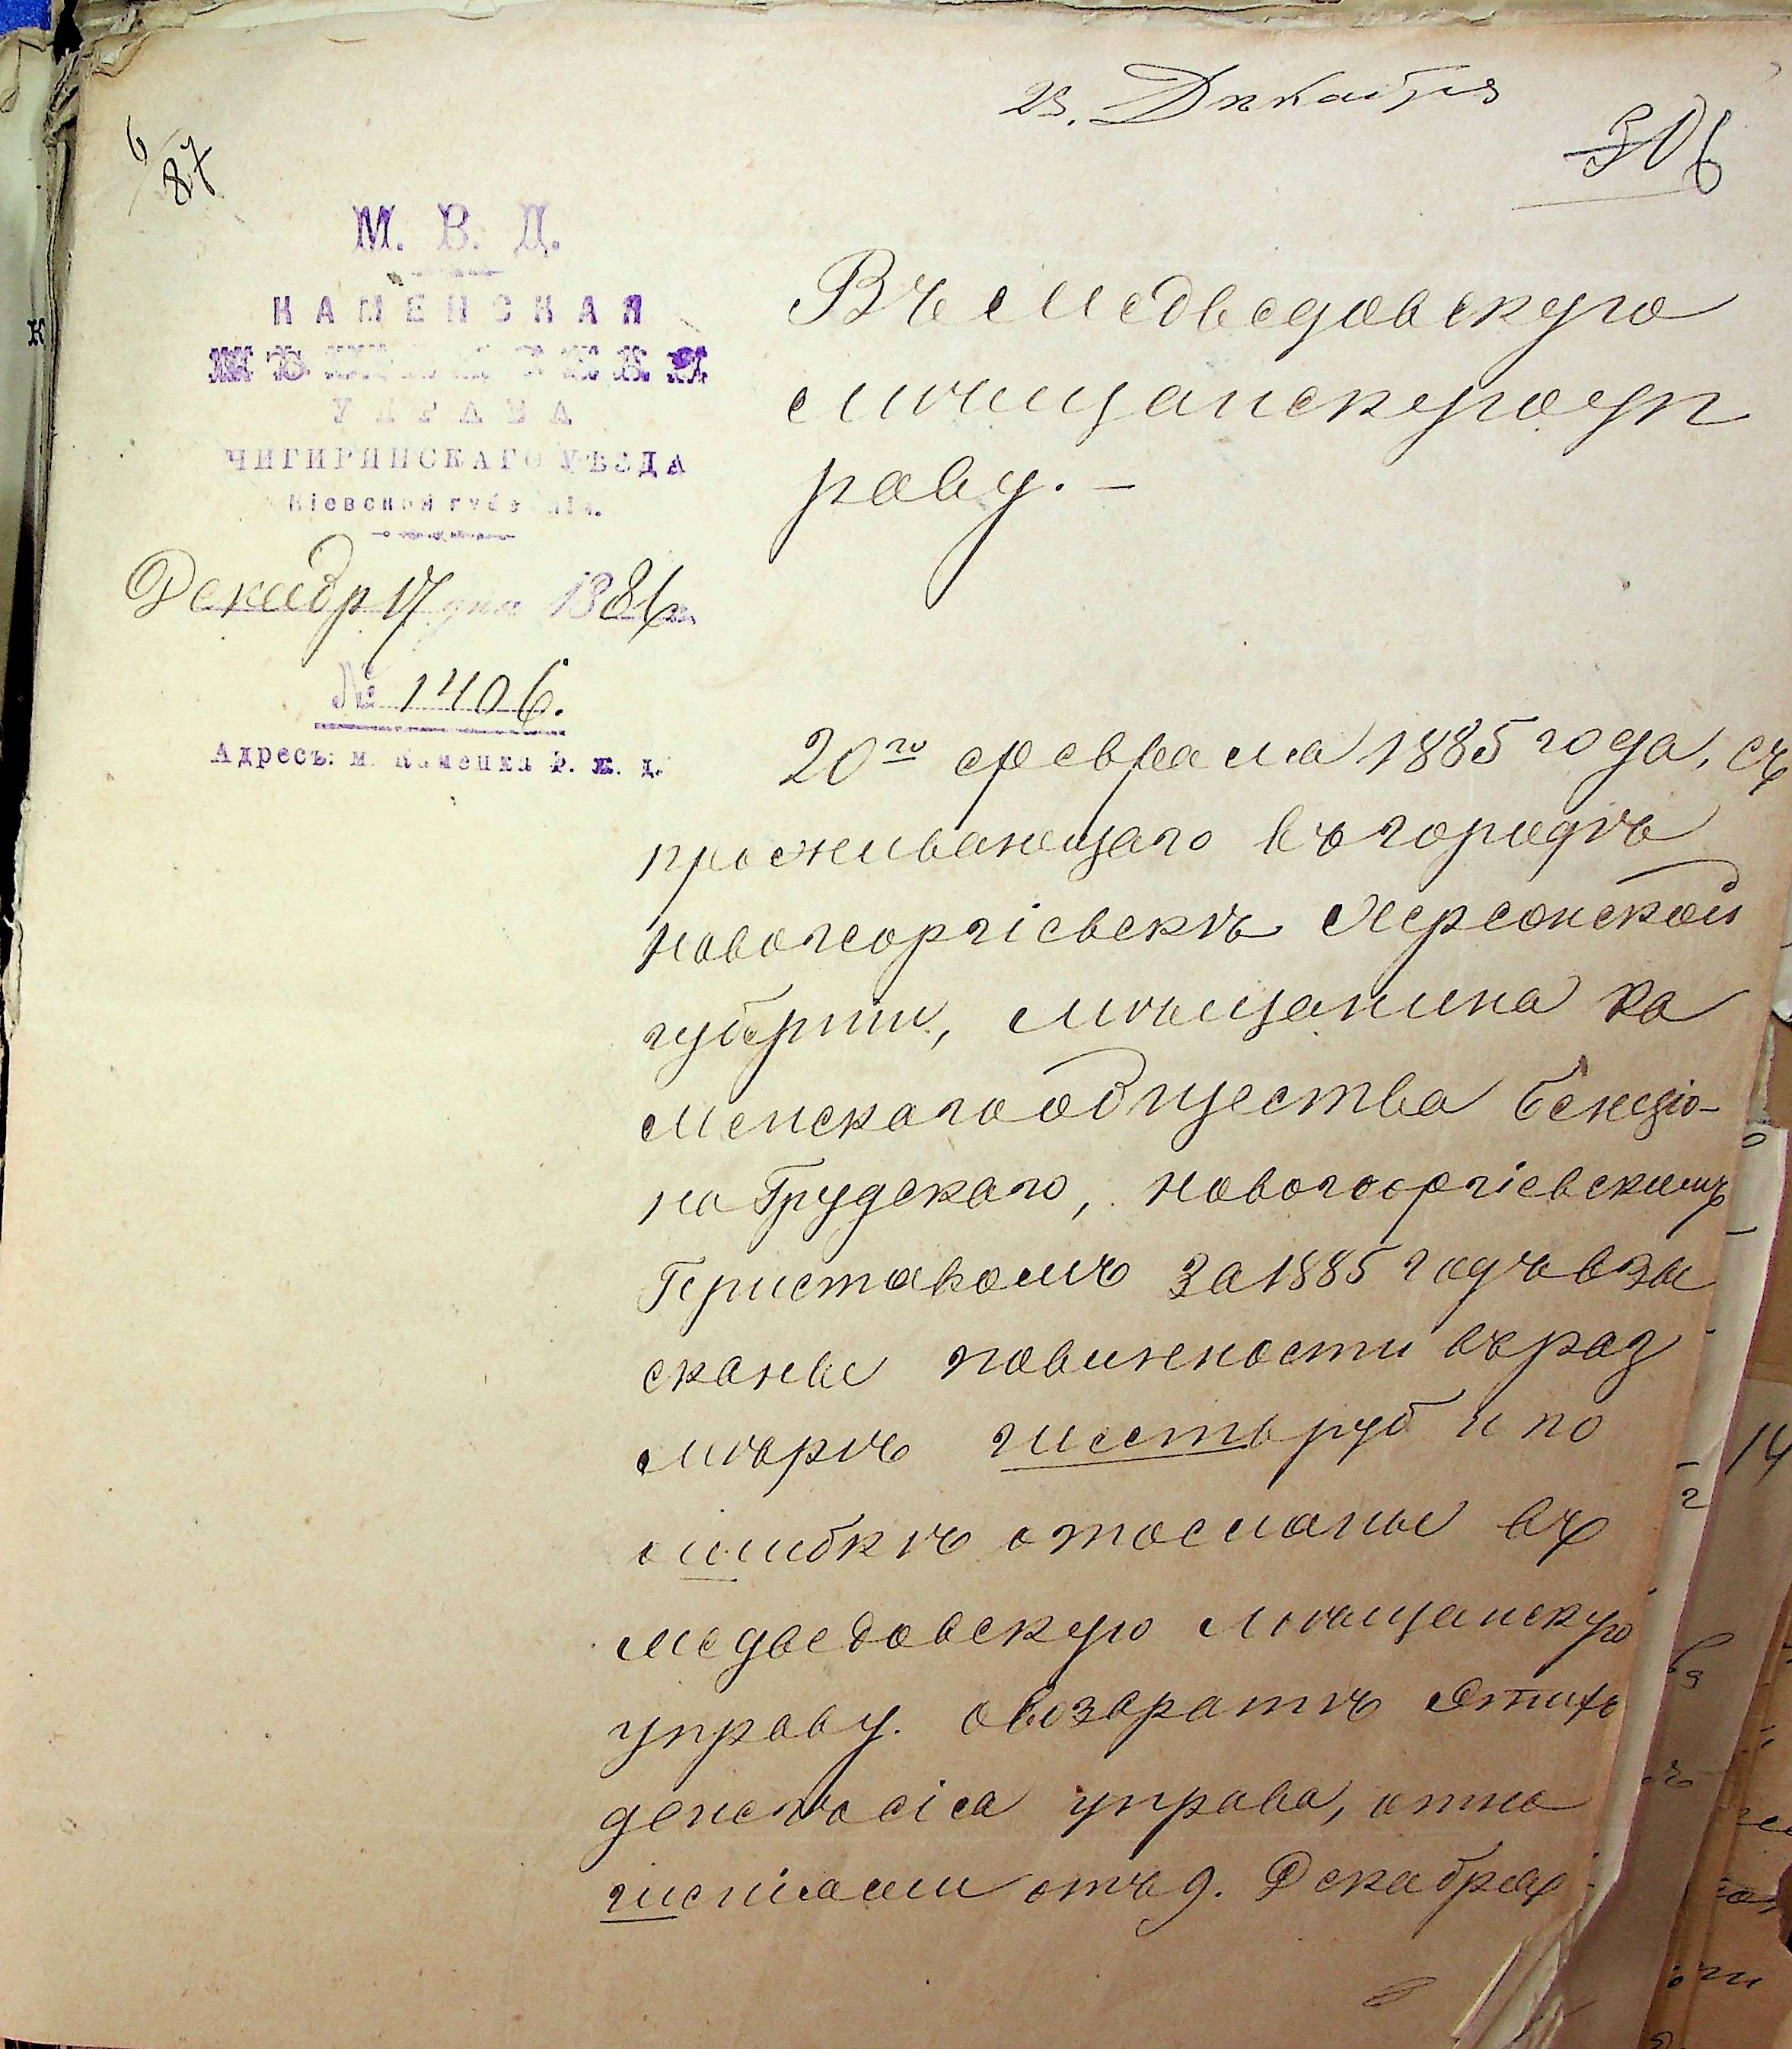 23. Декабря
306
6/87
М. В. Д.
КАМЕНСКАЯ
МѢЩАНСКАЯ
УПРАВА
ЧИГИРИНСКАГО УѢЗДА
Кіевской губерніи.
Декабр 17 дня 1886 г.
№ 1406.
Адресъ: м. Каменка Ф. ж. д.
Въ Медведовскую
мѣщанскую уп
раву. —
20го февраля 1885 года, съ
проживающаго въ городѣ
Новогеоргіевскѣ Херсонской
губерніи, мѣщанина Ка
менскаго общества Бенціо-
на Грудскаго, Новогеоргіевскимъ
Приставомъ за 1885 годъ взы
сканы повинности въ раз
мѣрѣ шесть руб и по
ошибкѣ отосланы въ
медведовскую мѣщанскую
управу. овозвратѣ этихъ
денегъ сія управа, отно
шеніями отъ 9. Декабря